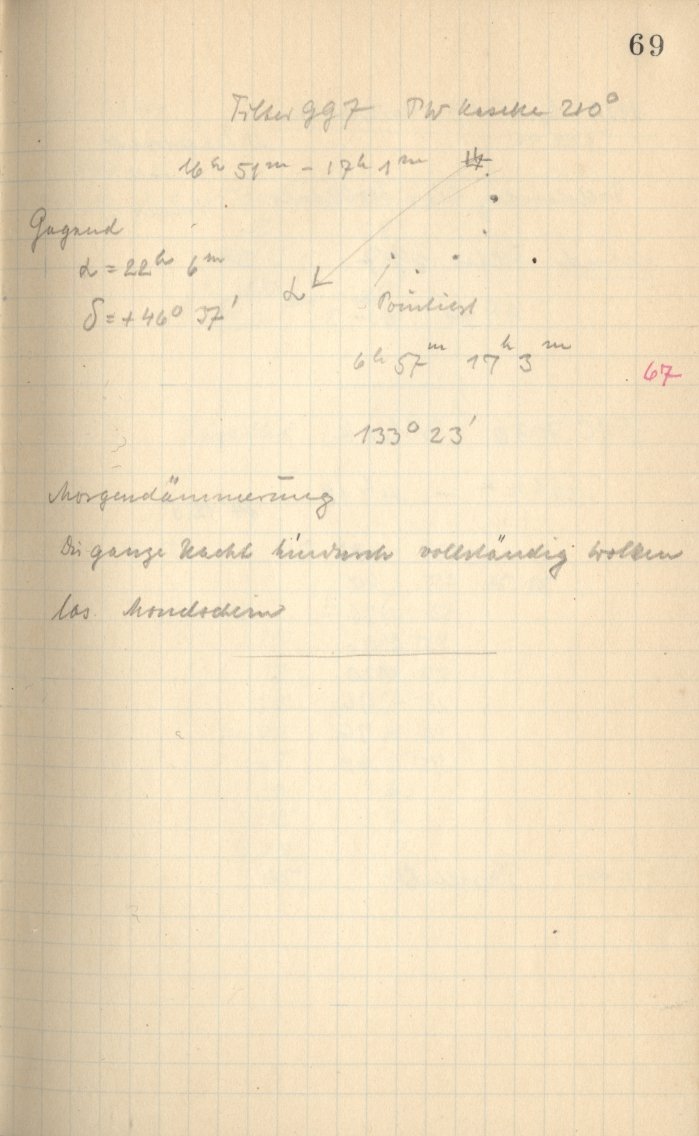 69
Filter GG7 PW 210°
16h 51m - 17h 1m
Gegend
α = 22h 6m
δ = +46° 37'
α
Pointiert
6h 57m 17h 3m
67
133° 23'
Morgendämmerung
Die ganze Nacht hindurch vollständig wolken
los. Mondschein